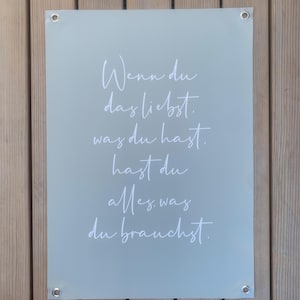 Wenn du
das liebst,
was du hast,
hast du
alles, was
du brauchst.